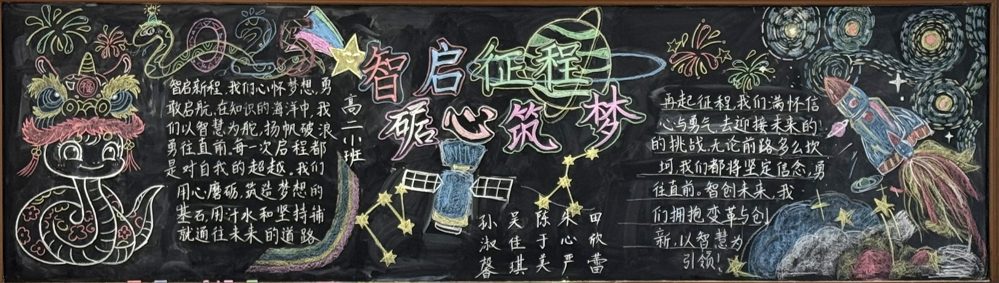 2025
智启征程
砺心筑梦
高二小班
智启新程,我们心怀梦想,勇
敢启航,在知识的海洋中,我
们以智慧为舵,扬帆破浪
勇往直前,每一次启程都
是对自我的超越。我们
用心磨砺,筑造梦想的
基石,用汗水和坚持铺
就通往未来的道路
孙淑馨
吴佳琪
陈于美
朱心严
田欣蕾
再起征程,我们满怀信
心与勇气,去迎接未来的
的挑战,无论前路多么坎
坷,我们都将坚定信念,勇
往直前。智创未来,我
们拥抱变革与创
新,以智慧为
引领!